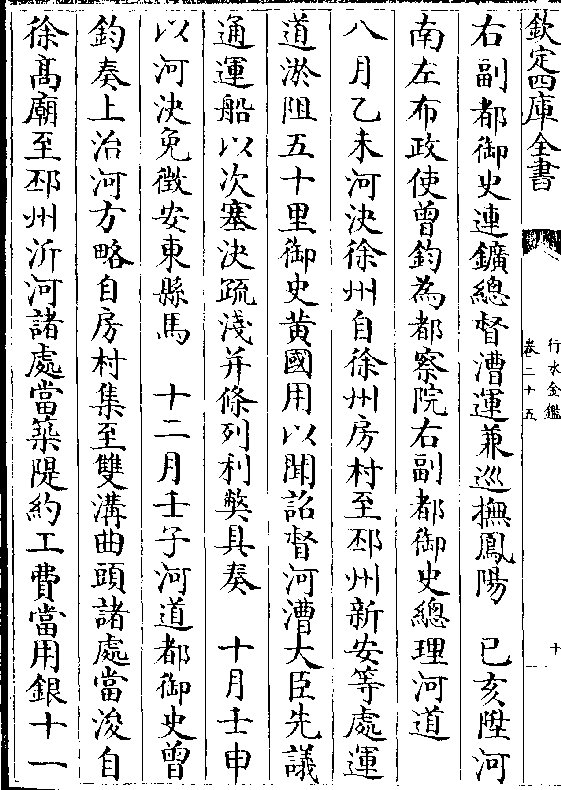 欽定四庫全書
行水金鑑
卷二十五
十
右副都御史連鑛總督漕運兼巡撫鳳陽　已亥陞河
南左布政使曾鈞為都察院右副都御史總理河道
八月乙未河決徐州自徐州房村至邳州新安等處運
道淤阻五十里御史黄國用以聞詔督河漕大臣先議
通運船以次塞決疏淺并條列利獘具奏　十月壬申
以河決免徵安東縣馬　十二月壬子河道都御史曾
鈞奏上治河方略自房村集至雙溝曲頭諸處當浚自
徐髙廟至邳州沂河諸處當築隄約工費當用銀十一